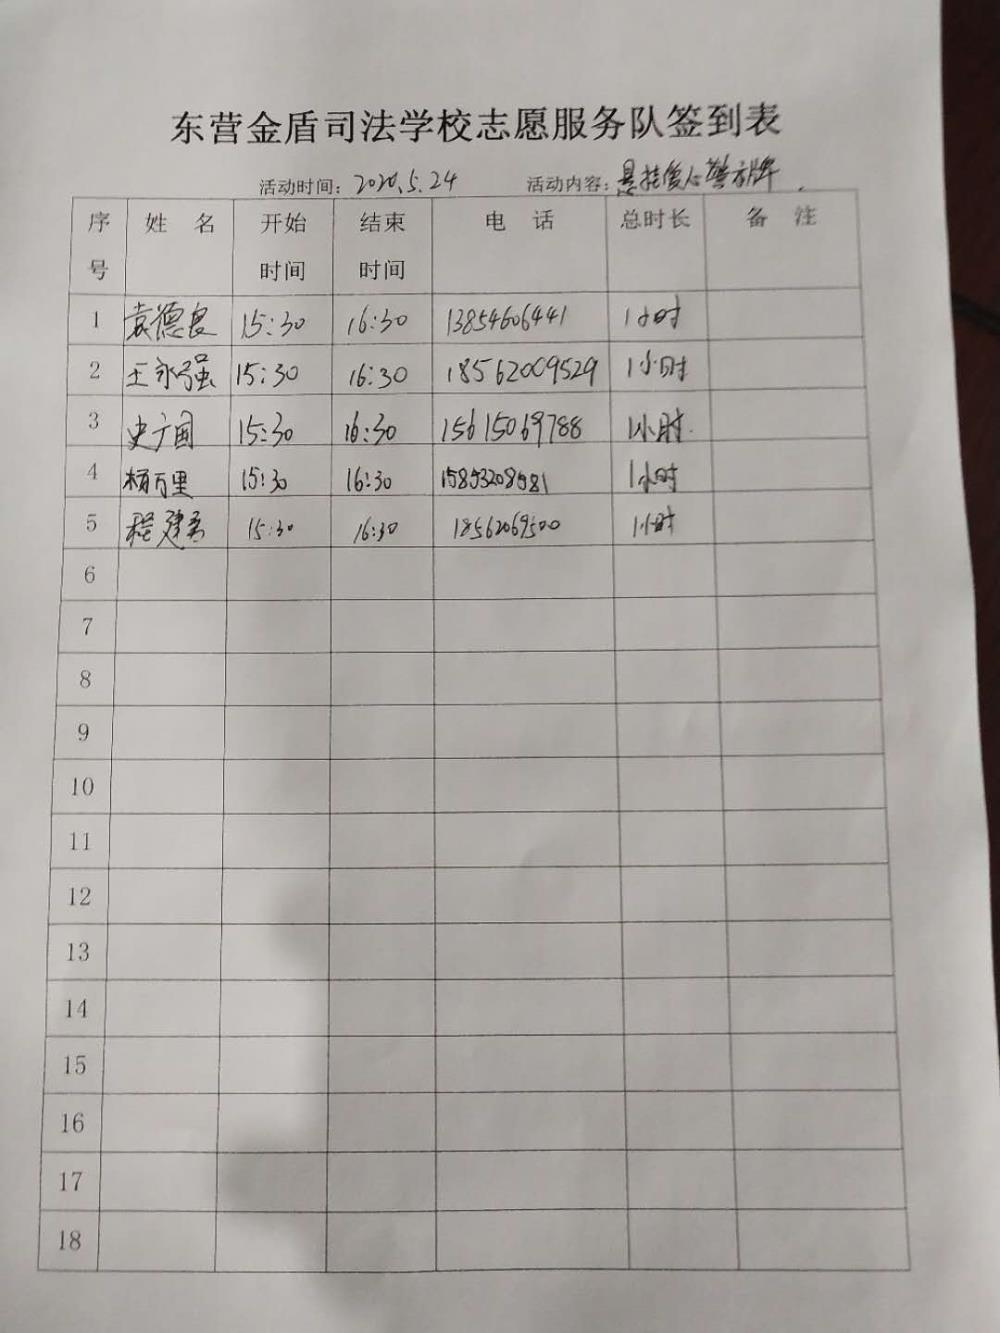 东营金盾司法学校志愿服务队签到表
活动时间：2020.5.24 活动内容：悬挂爱心警示牌.
序号 姓 名 开始时间 结束时间 电 话 总时长 备 注
1 袁德良 15:30 16:30 13854606441 1小时
2 王永强 15:30 16:30 18562009529 1小时
3 史广国 15:30 16:30 15615069788 1小时.
4 杨万里 15:30 16:30 1小时
5 程建 15:30 16:30 18562069500 1小时
6
7
8
9
10
11
12
13
14
15
16
17
18